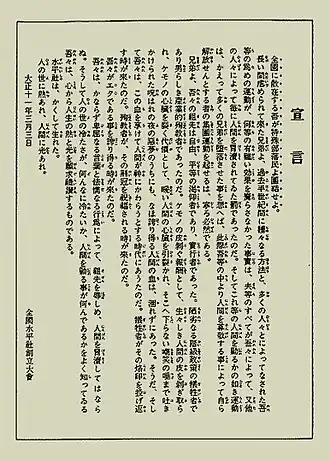 宣言
全國に散在する吾が特殊部落民よ團結せよ。
長い間虐められて來た兄弟よ、過去半世紀間に種々なる方法と、多くの人々とによつてなされた吾
等の爲めの運動が、何等の有難い効果を齎らさなかつた事實は、夫等のすべてが吾々によつて、又他
の人々によつて毎に人間を冒瀆されてゐた罰であつたのだ。そしてこれ等の人間を勦るかの如き運動
は、かえつて多くの兄弟を墮落させた事を想へば、此際吾等の中より人間を尊敬する事によつて自ら
解放せんとする者の集團運動を起せるは、寧ろ必然である。
兄弟よ、吾々の祖先は自由、平等の渇仰者であり、實行者であつた。陋劣なる階級政策の犠牲者で
あり男らしき産業的殉教者であつたのだ。ケモノの皮剝ぐ報酬として、生々しき人間の皮を剝ぎ取ら
れ、ケモノの心臓を裂く代價として、暖い人間の心臓を引裂かれ、そこへ下らない嘲笑の唾まで吐き
かけられた呪はれの夜の惡夢のうちにも、なほ誇り得る人間の血は、涸れずにあつた。そうだ、そし
て吾々は、この血を享けて人間が神にかわらうとする時代にあうたのだ。犠牲者がその烙印を投げ返
す時が來たのだ。殉教者が、その荊冠を祝福される時が來たのだ。
吾々がエタである事を誇り得る時が來たのだ。
吾々は、かならず卑屈なる言葉と怯懦なる行爲によつて、祖先を辱しめ、人間を冒瀆してはなら
ぬ。そうして人の世の冷たさが、何んなに冷たいか、人間を勦る事が何んであるかをよく知つてゐる
吾々は、心から人生の熱と光を願求禮讃するものである。
水平社は、かくして生れた。
人の世に熱あれ、人間に光あれ。
大正十一年三月三日
全國水平社創立大會